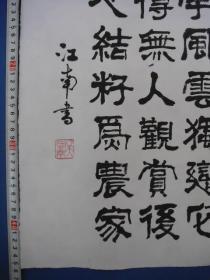 風雲獨變它
得無人觀賞後
結籽爲農家
江南書